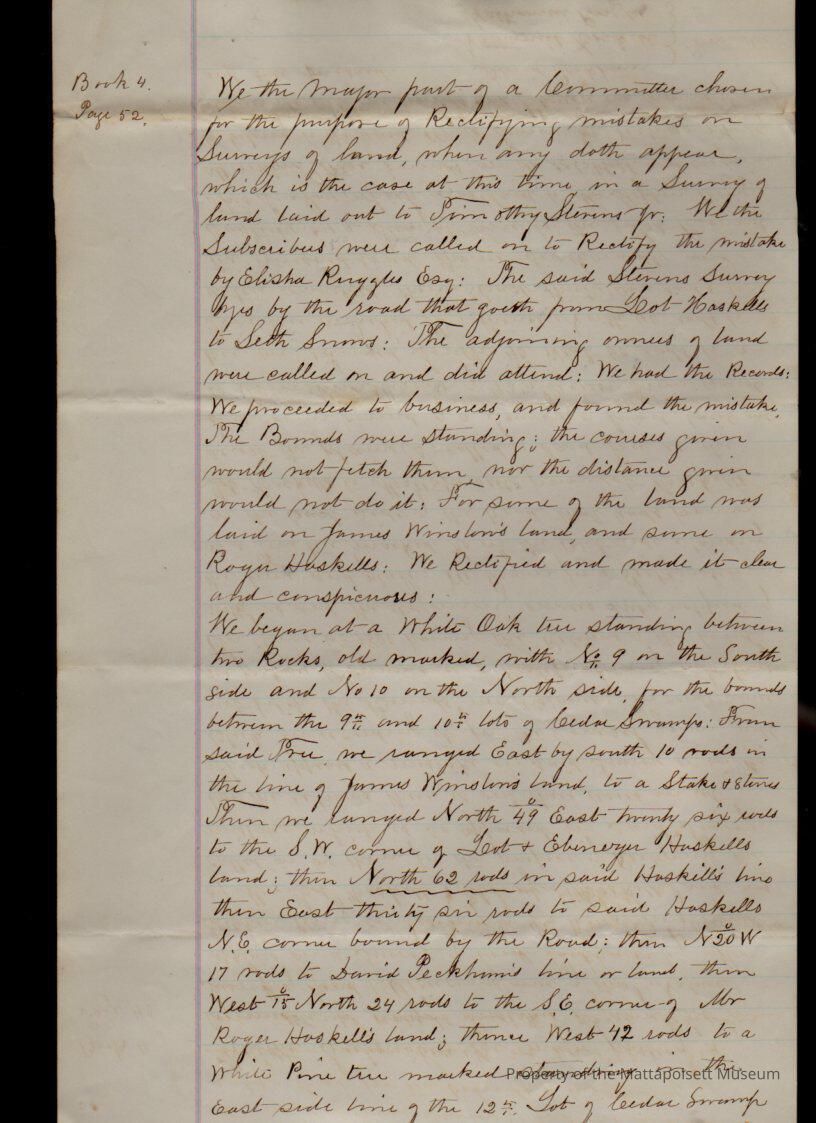 Book 4.
Page 52.
We the Major part of a Committee chosen
for the purpose of Rectifying mistakes on
Surveys of land, when any doth appear,
which is the case at this time, in a Survey of
land laid out to Timothy Stevens Jr: We the
Subscribers were called on to Rectify the mistake
by Elisha Ruggles Esq: The said Stevens Survey
lyes by the road that goeth from Lot Haskells
to Seth Snows: The adjoining owners of land
were called on and did attend: We had the Records:
We proceeded to business, and found the mistake,
The Bounds were standing; the courses given
would not fetch them, nor the distance given
would not do it: For some of the land was
laid on James Winslow's land, and some on
Roger Haskells: We Rectified and made it clear
and conspicuous:
We began at a White Oak tree standing between
two Rocks, old marked, with No 9 on the South
side and No 10 on the North side, for the bounds
between the 9th and 10th lots of Cedar Swamps: From
said Tree, we ranged East by south 10 rods in
the line of James Winslow's land, to a Stake & Stones
Then we ranged North 49° East twenty six rods
to the S.W. corner of Lot & Ebenezer Haskells
land; then North 62 rods in said Haskell's line
then East thirty six rods to said Haskells
N.E. corner bound by the Road: then N20°W
17 rods to David Peckham's line or land, then
West 15° North 24 rods to the S.E. corner of Mr
Roger Haskell's land; thence West 42 rods to a
White Pine tree marked standing in the
East side line of the 12th Lot of Cedar Swamp
Property of the Mattapoisett Museum